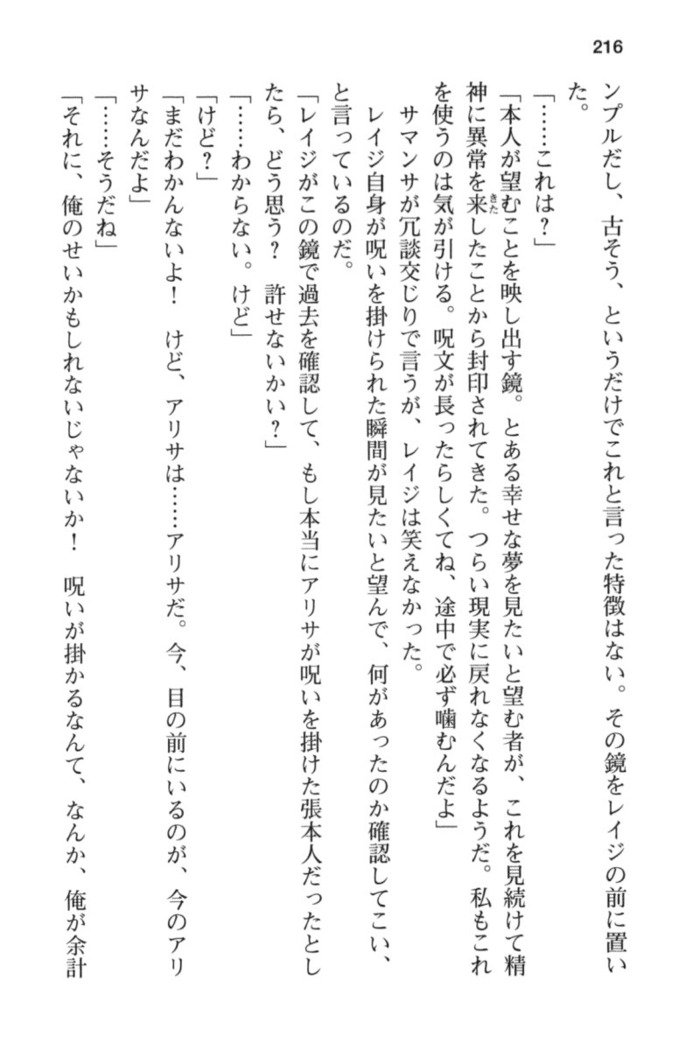 216
ンプルだし、古そう、というだけでこれと言った特徴はない。その鏡をレイジの前に置い
た。
「……これは？」
「本人が望むことを映し出す鏡。とある幸せな夢を見たいと望む者が、これを見続けて精
神に異常を来したことから封印されてきた。つらい現実に戻れなくなるようだ。私もこれ
きた
を使うのは気が引ける。呪文が長ったらしくてね、途中で必ず噛むんだよ」
サマンサが冗談交じりで言うが、レイジは笑えなかった。
レイジ自身が呪いを掛けられた瞬間が見たいと望んで、何があったのか確認してこい、
と言っているのだ。
「レイジがこの鏡で過去を確認して、もし本当にアリサが呪いを掛けた張本人だったとし
たら、どう思う？　許せないかい？」
「……わからない。けど」
「けど？」
「まだわかんないよ！　けど、アリサは……アリサだ。今、目の前にいるのが、今のアリ
サなんだよ」
「……そうだね」
「それに、俺のせいかもしれないじゃないか！　呪いが掛かるなんて、なんか、俺が余計